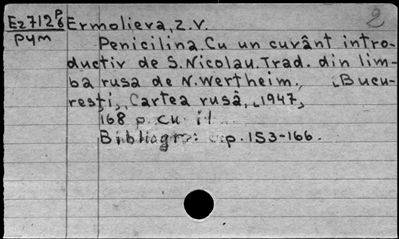 Ez7126 P Ermolieva, Z.V. 2
pym
Penicilina. Cu un cuvânt intro-
ductiv de S. Nicolau. Trad. din lim-
ba rusa de N. Wertheim. Bucu-
rești, Cartea rusă, 1947,
168 p. cu il.
Bibliogr.: p. 153-166.